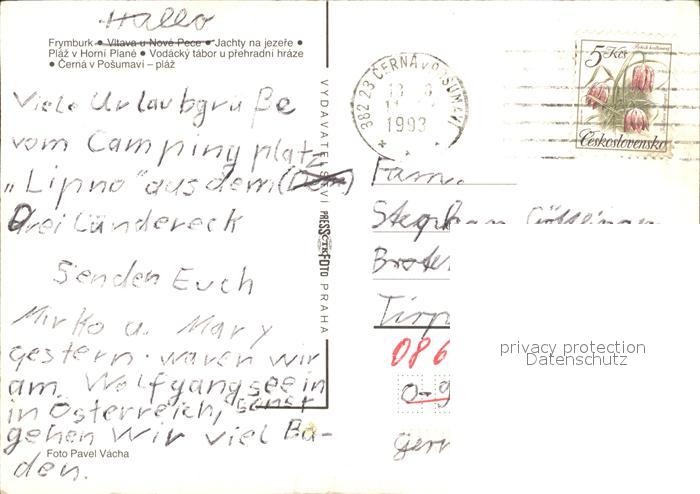 Hallo
Frymburk • Vltava u Nové Pece • Jachty na jezeře •
Pláž v Horní Plané • Vodácký tábor u přehradní hráze
• Černá v Pošumaví – pláž
Viele Urlaubgrüße
vom Camping platz
„Lipno" aus dem
Drei Ländereck
Senden Euch
Mirko u. Mary
gestern waren wir
am Wolfgangsee in
in Österreich, sonst
gehen wir viel Ba-
den.
Foto Pavel Vácha
VYDAVATELSTVÍ PRESSFOTO PRAHA
ČTK
382 23 ČERNÁ v POŠUMAVÍ
1993
5 Kčs
Československo
Fam.
Stephan
Brote
Tirp
086
O-9
Gern
privacy protection
Datenschutz